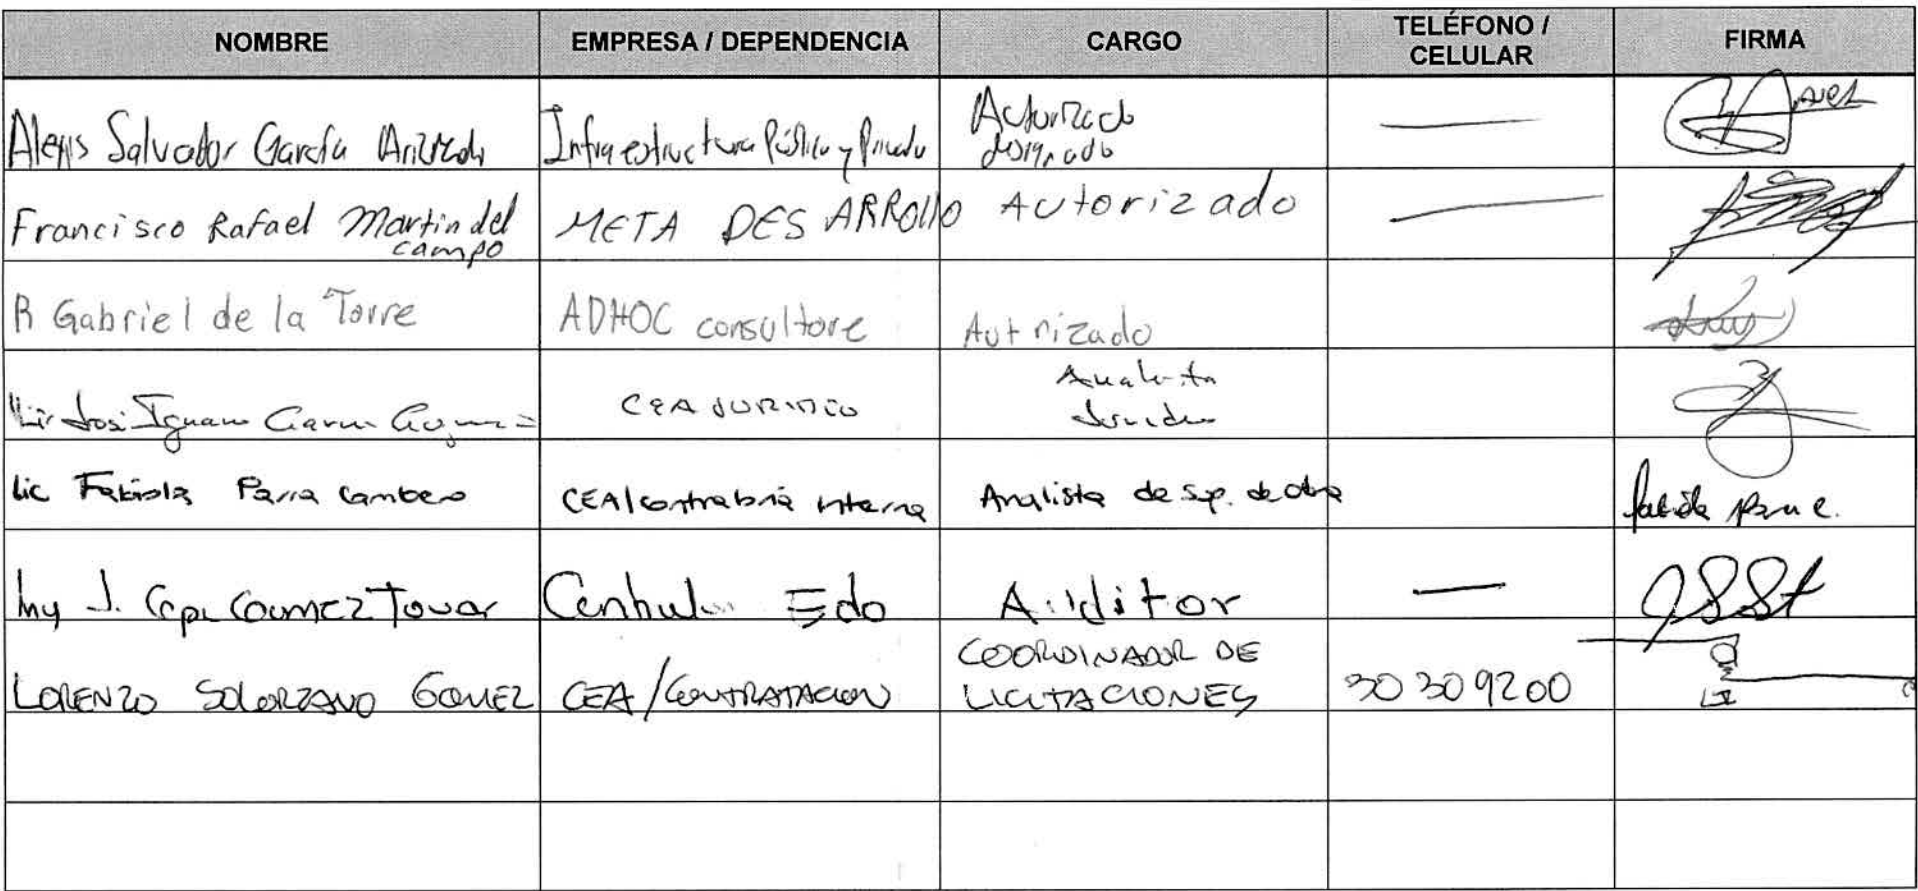 NOMBRE EMPRESA / DEPENDENCIA CARGO TELÉFONO / CELULAR FIRMA
Salvador García Infraestructura Pública y Privada Autorizado designado —
Francisco Rafael Martin del campo META DESARROLLO Autorizado —
R Gabriel de la Torre ADHOC consultore Autrizado
José CEA JURIDICO
Lic Fabiola Parra Cambero CEA/contraloria interna Analista de sup. de obra
Ing J. Gomez Tovar Edo Auditor —
LORENZO SOLORZANO GOMEZ CEA/CONTRATACION COORDINADOR DE LICITACIONES 30309200